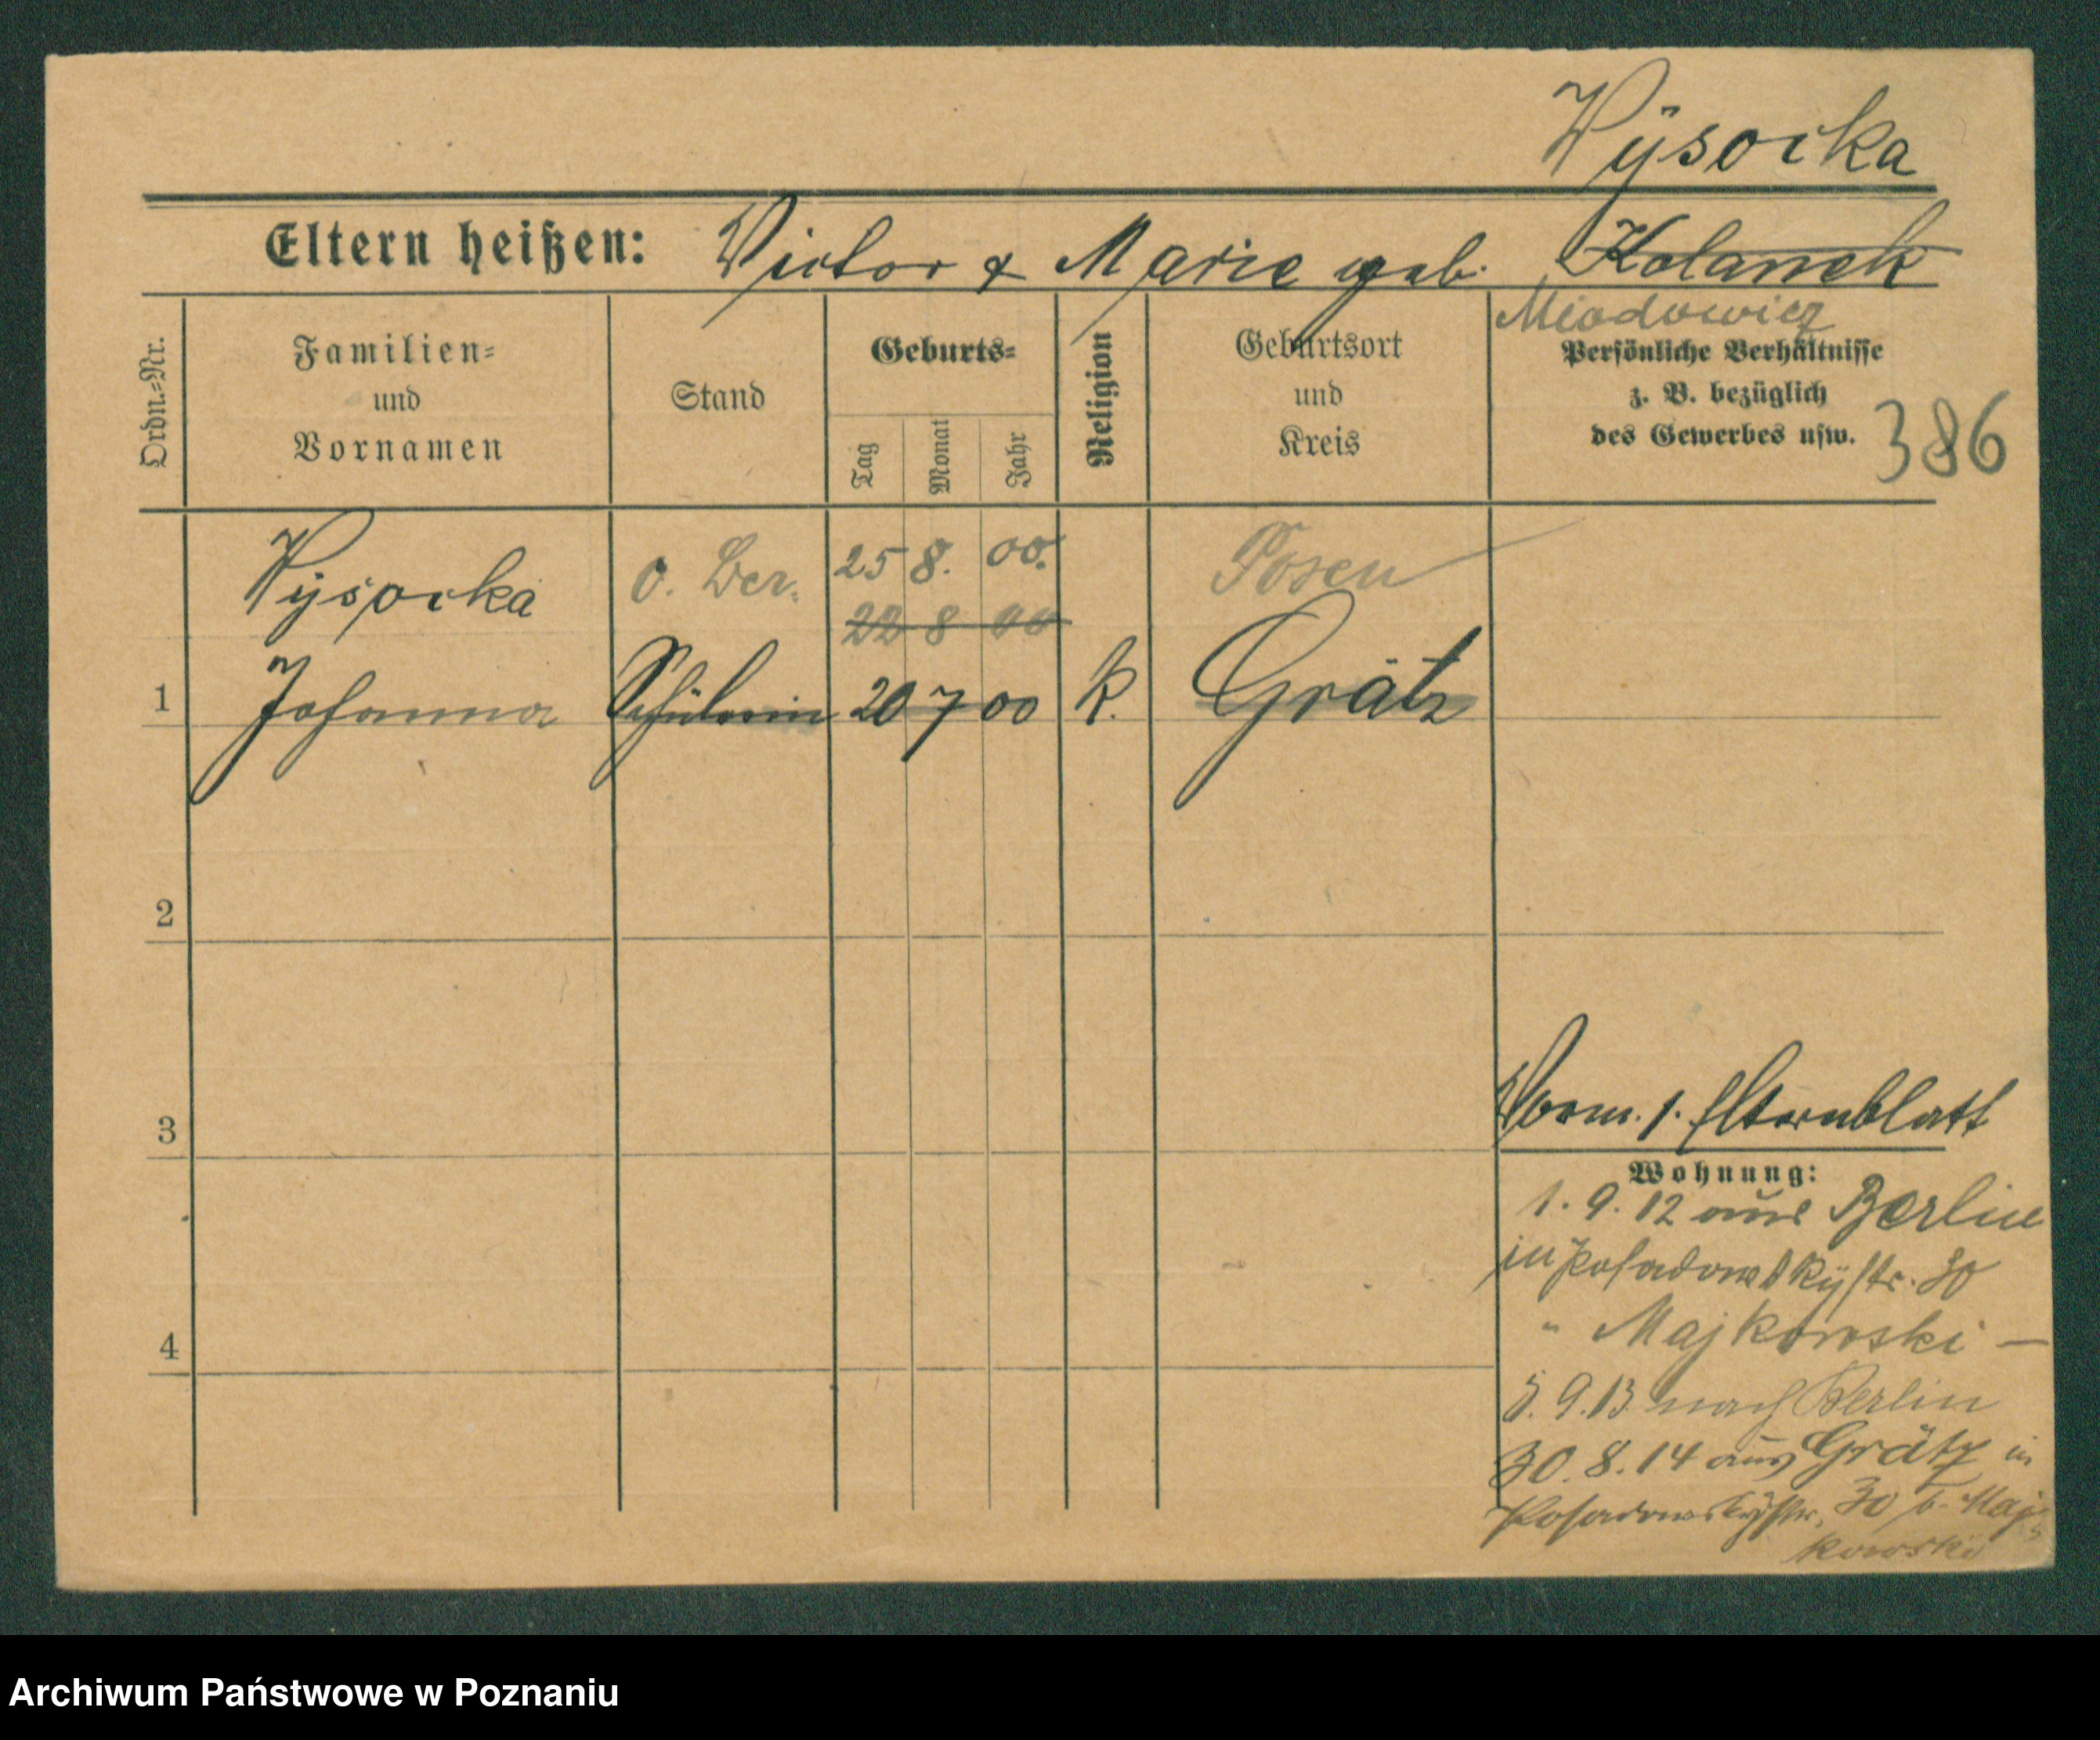 Wÿsocka
Eltern heißen: Victor & Marie geb. Kolanek
Miodowicz
Ordn.=Nr.
Familien=
und
Vornamen
Stand
Geburts=
Tag
Monat
Jahr
Religion
Geburtsort
und
Kreis
Persönliche Verhältnisse
z. B. bezüglich
des Gewerbes usw.
386
Wÿsocka o. Ber. 25 8. 00. Posen
22 8 00
1 Johanna Schülerin 20 7 00 k. Grätz
2
3
4
Vorm. s. Elternblatt
Wohnung:
1. 9. 12 aus Berlin
in Posadowskÿstr. 30
" Majkowski —
5. 9. 13 nach Berlin
30. 8. 14 aus Grätz in
Posadowskÿstr. 30 b. Maj=
kowski
Archiwum Państwowe w Poznaniu